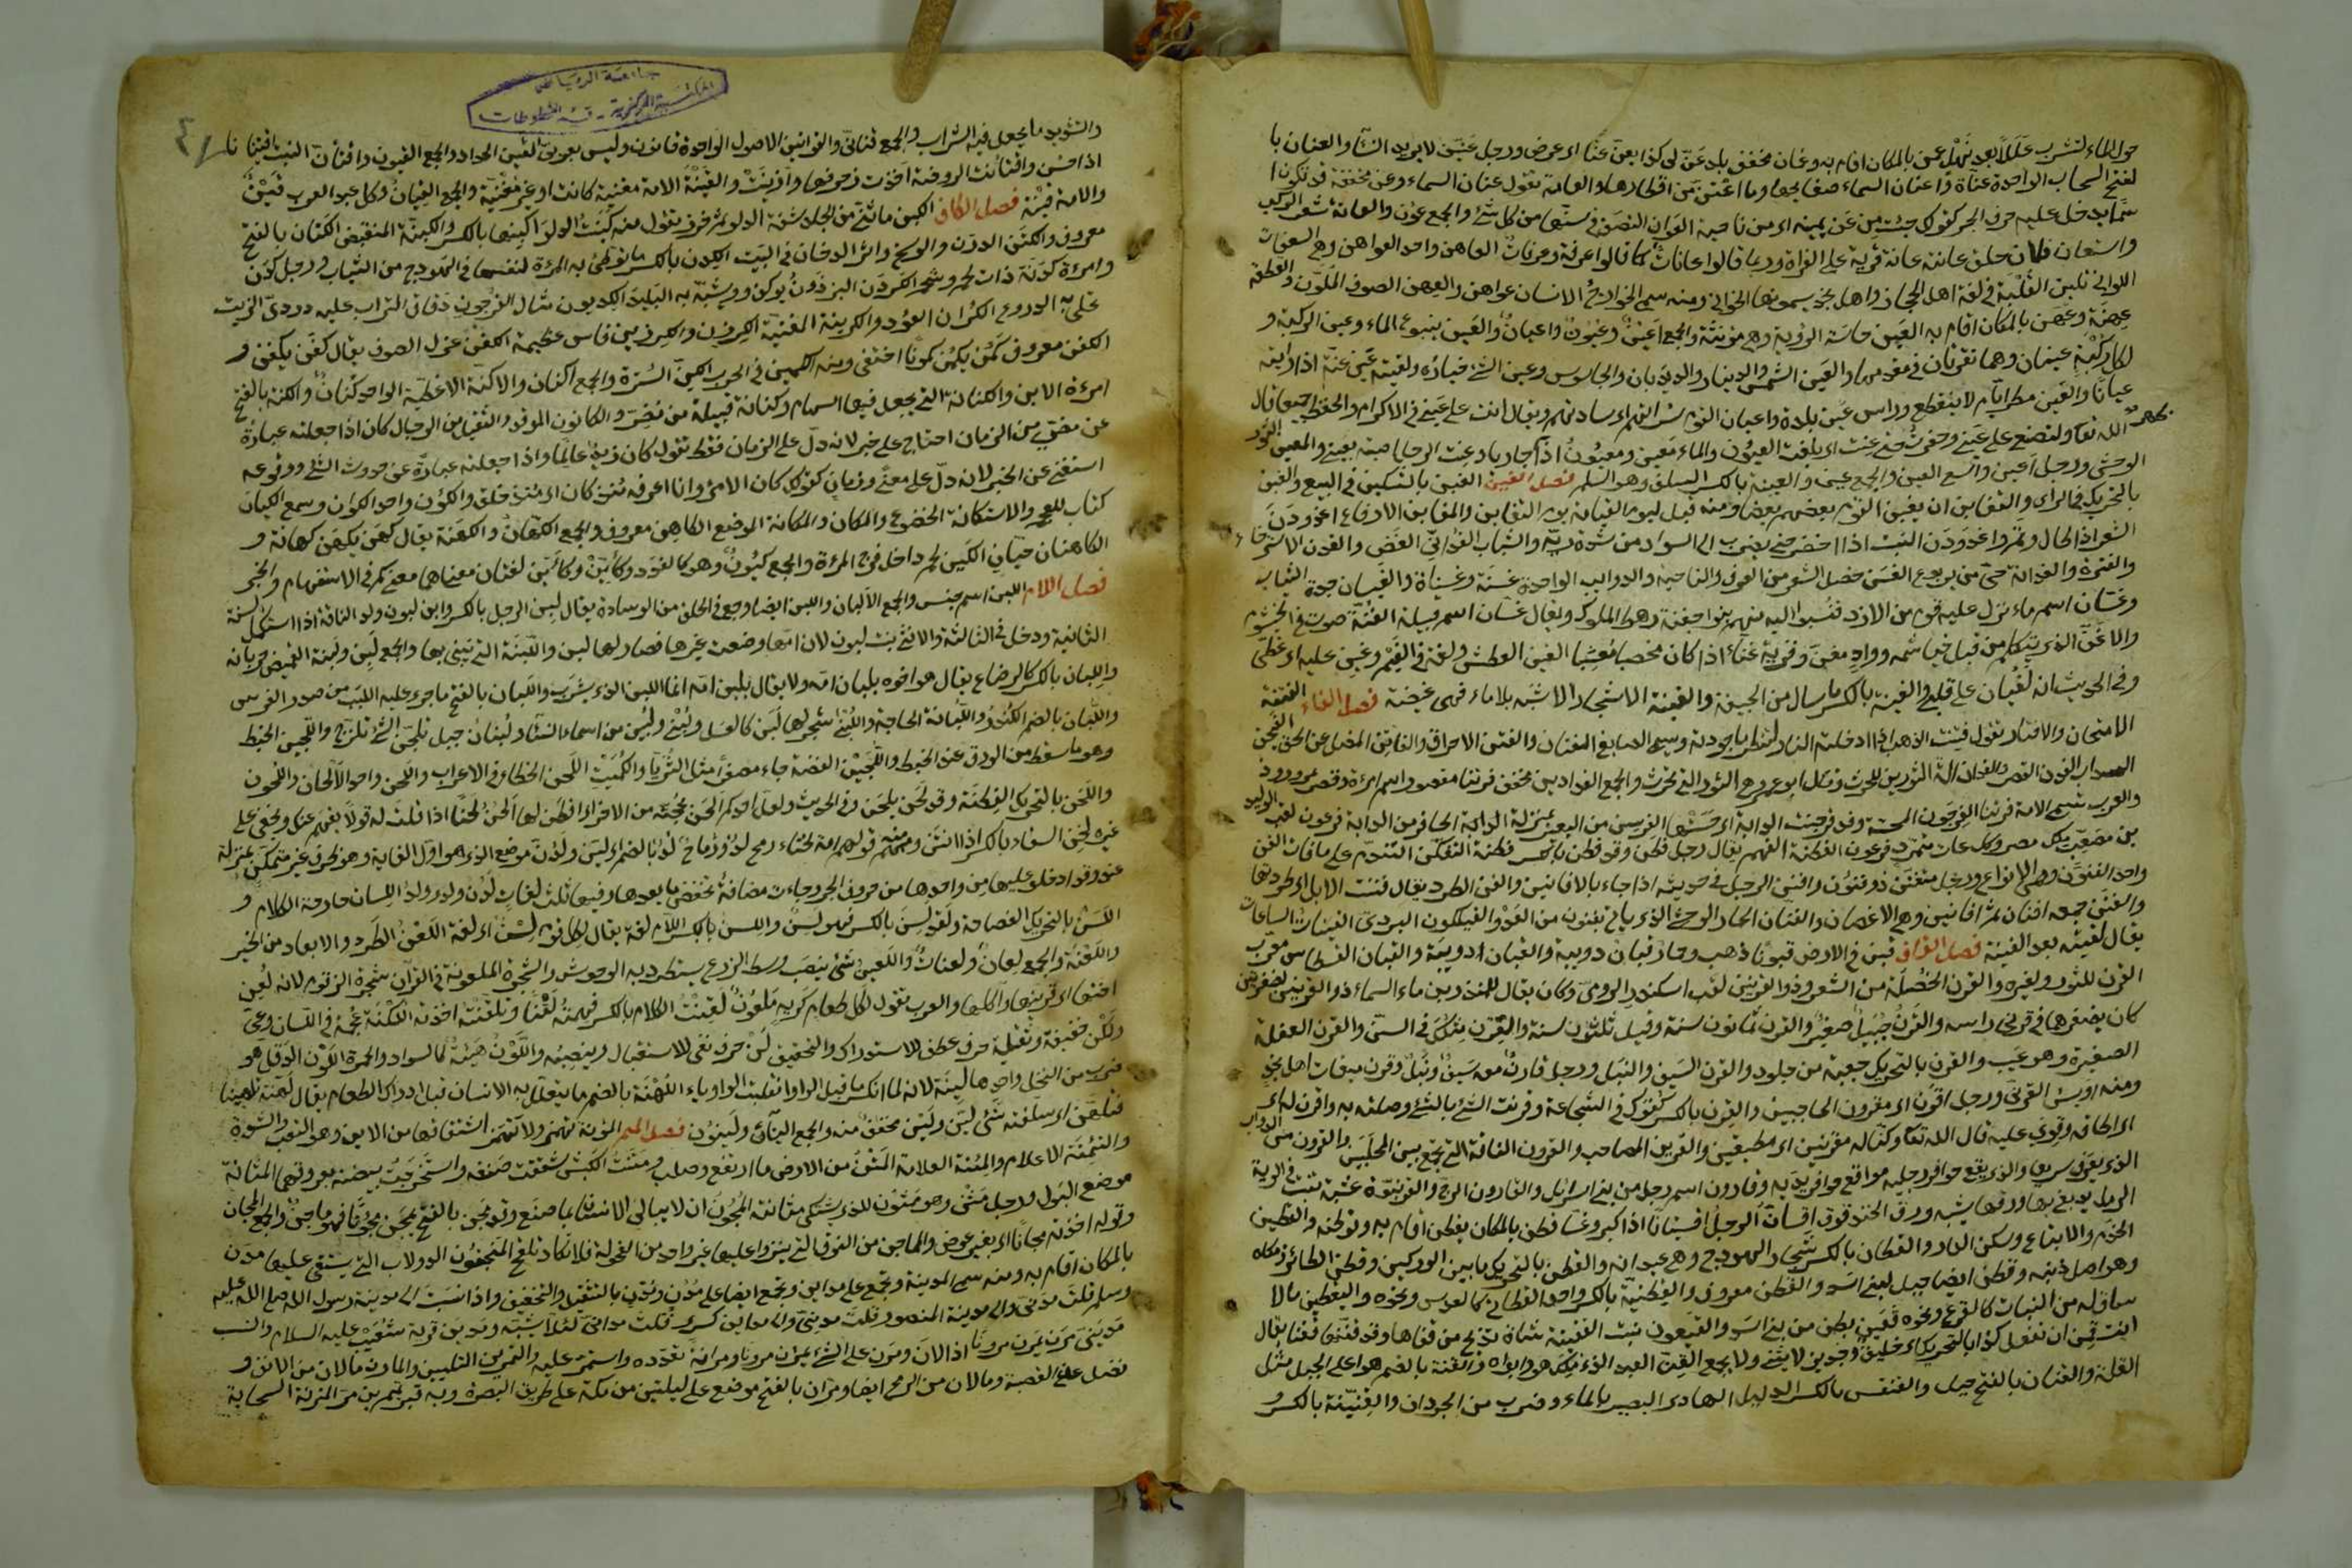 حول الماء لتشرب عللا بعد نهل عن بالمكان اقام به وعمان مخفف بلد عن لي كذا يعن عنا اي عرض ورجل عنين لا يريد النساء والعنان با
لفتح السحاب الواحدة عنانة واعنان السماء صفايحها وما اعتن من اقطارها والعامة تقول عنان السماء وعن مخففة قد تكون ا
سما يدخل عليه حرف الجر كقولك جئت من عن يمينه اي من ناحية العوان النصف في سنها من كل شئ والجمع عون والعانة شعر الركب
واستعان فلان حلق عانته عانة قرية على الفراة وربما قالوا عانات كما قالوا عرفة وعرفات العاهن واحد العواهن وهي السعفات
اللواتي تلين القلبة في لغة اهل الحجاز واهل نجد يسمونها الخوافي ومنه سمي جوارح الانسان عواهن والعهن الصوف الملون والقطعة
عهنة وعهن بالمكان اقام به العين حاسة الرؤية وهي مؤنثة والجمع اعين وعيون واعيان والعين ينبوع الماء وعين الركبة و
لكل ركبة عينان وهما نقرتان في مقدمها والعين الشمس والدينار والديدبان والجاسوس وعين الشئ خياره ولقيته عين عنة اذا رايته
عيانا والعين مطر ايام لا ينقطع وراس عين بلدة واعيان القوم اشرافهم ويقال انت على عيني في الاكرام والحفظ جميعا قال
الله تعا ولتصنع على عيني وحفرت حتى عنت اي بلغت العيون والماء معين ومعيون
الوحشي ورجل اعين واسع العين والجمع عين والعينة بالكسر السلف وهو السلم فصل الغين الغبن بالتسكين في البيع والغبن
بالتحريك في الراي والتغابن ان يغبن القوم بعضهم بعضا ومنه قيل ليوم القيامة يوم التغابن والمغابن الارفاغ اغدودن
الشعر اذا طال وتم واغدودن النبت اذا اخضر حتى يضرب الى السواد من شدة ريه والشباب الغداني الغض والغدن الاسترخا
والفترة والغدانة حي من يربوع الغسن خصل الشعر من العرف والناصية والذوايب الواحدة غسنة وغسناة والغيسان حدة الشباب
وغسان اسم ماء نزل عليه قوم من الازد فنسبوا اليه منهم بنو جفنة رهط الملوك ويقال غسان اسم قبيلة الغنة صوت في الخيشوم
والاغن الذي يتكلم من قبل خياشيمه وواد مغن وقرية غناء اذا كان مخصبا معشبا الغين العطش ولغة في الغيم وغين عليه اي غطى
وفي الحديث انه ليغان على قلبي والغينة بالكسر ما سال من الجيفة والغينة الاشجار الملتفة بلا ماء فصل الفاء الفتنة
الامتحان والاختبار تقول فتنت الذهب اذا ادخلته النار لتنظر ما جودته ويسمى الصايغ الفتان والفتن الاحراق والفاتن المضل عن الحق
والعرب تسمي الامة فرتنا الفرجون المحسة وقد فرجنت الدابة اي حسستها الفرسن من البعير بمنزلة الحافر من الدابة فرعون لقب الوليد
بن مصعب ملك مصر وكل عات متمرد فرعون الفطنة الفهم يقال رجل فطن وقد فطن بالكسر فطنة التفكن التندم على ما فات الفن
واحد الفنون وهي الانواع ورجل متفنن ذو فنون وافتن الرجل في حديثه اذا جاء بالافانين والفن الطرد يقال فننت الابل اي طردتها
والفنن جمعه افنان ثم افانين وهي الاغصان والفنان الحمار الوحشي الذي ياتي بفنون من العدو والفيلكون البردي الفينات الساعات
يقال لقيته بعد الفينة فصل القاف قبن في الارض قبونا ذهب وحمار قبان دويبة والقبان القسطاس معرب
القرن للثور ولغيره والقرن الخصلة من الشعر وذو القرنين لقب اسكندر الرومي وكان يقال للمنذر بن ماء السماء ذو القرنين لضفيرتين
كان يضفرهما في قرني راسه والقرن جبيل صغير والقرن ثمانون سنة وقيل ثلثون سنة والقرن مثلك في السن والقرن العفلة
الصغيرة وهو عيب والقرن بالتحريك جعبة من جلود والقرن السيف والنبل ورجل قارن معه سيف ونبل وقرن ميقات اهل نجد
ومنه اويس القرني ورجل اقرن اي مقرون الحاجبين والقرن بالكسر كفؤك في الشجاعة وقرنت الشئ بالشئ وصلته به واقرن له اي
اي اطاقه وقوي عليه قال الله تعا وما كنا له مقرنين اي مطيقين والقرين المصاحب والقرون الناقة التي تجمع بين المحلبين والقرون من الدواب
الذي يعرق سريعا والذي يقع حوافر رجليه مواقع حوافر يديه وقارون اسم رجل من بني اسرائيل والقارون الوج والقرنوة عشبة تنبت في الوية
الرمل يدبغ بها ورقها يشبه ورق الحندقوق اقسأن الرجل اقسينانا اذا كبر وعسا قطن بالمكان يقطن اقام به وتوطنه والقطين
الخدم والاتباع وسكن الدار والقطان بالكسر شجار الهودج وهي عيدانه والقطن بالتحريك ما بين الوركين وقطن الطائر زمكاه
وهو اصل ذنبه وقطن ايضا جبل لبني اسد والقطن معروف والقطنية بالكسر واحد القطاني كالعدس ونحوه واليقطين ما لا
ساق له من النبات كالقرع ونحوه قعين بطن من بني اسد والقيعون نبت القفينة شاة تذبح من قفاها وقد قفنها قفنا يقال
انت قمن ان تفعل كذا بالتحريك اي خليق وجدير لا يثنى ولا يجمع القن العبد الذي ملك هو وابواه والقنة بالضم هو اعلى الجبل مثل
القلة والقنان بالفتح جبل والقنقن بالكسر الدليل الهادي البصير بالماء وضرب من الجرذان والقنينة بالكسر و
جامعة الرياض
المكتبة المركزية - قسم المخطوطات
والتشديد ما يجعل فيه الشراب والجمع قناني والقوانين الاصول الواحدة قانون وليس بعربي القين الحداد والجمع القيون واقتان النبت اقتيانا
اذا حسن واقتانت الروضة اخذت زخرفها وازينت والقينة الامة مغنية كانت او غير مغنية والجمع القيان وكل عبد العرب قين
والامة قينة فصل الكاف الكبن ما ثني من الجلد شفة الدلو ثم خرز تقول منه كبنت الدلو اكبنها بالكسر والكبنة المنقبض الكتان بالفتح
معروف والكتن الدرن والوسخ واثر الدخان في البيت الكدن بالكسر ما توطئ به المرءة لنفسها في الهودج من الثياب ورجل كدن
وامرءة كدنة ذات لحم وشحم الكودن البرذون يوكف ويشبه به البليد الكديون مثال الفرجون دقاق التراب عليه دردي الزيت
تجلى به الدروع الكران العود والكرينة المغنية الكرزن والكرزين فاس عظيمة الكفن غزل الصوف يقال كفن يكفن و
الكفن معروف كمن يكمن كمونا اختفى ومنه الكمين في الحرب الكن السترة والجمع اكنان والاكنة الاغطية الواحد كنان والكنة بالفتح
امرءة الابن والكنانة التي يجعل فيها السهام وكنانة قبيلة من مضر والكانون الموقد والثقيل من الرجال كان اذا جعلته عبارة
عن مضي من الزمان احتاج على خبر لانه دل على الزمان فقط تقول كان زيد عالما واذا جعلته عبارة عن حدوث الشئ ووقوعه
استغنى عن الخبر لانه دل على معنى وزمان كقولك كان الامر وانا اعرفه مذ كان اي مذ خلق والكون واحد الاكوان وسمع الكيان
كتاب للعجم والاستكانة الخضوع والمكان والمكانة الموضع الكاهن معروف والجمع الكهان والكهنة يقال كهن يكهن كهانة و
الكاهنان حيان الكين لحم داخل فرج المرءة والجمع كيون وهو كالغدد وكائن وكاين لغتان معناهما معنى كم في الاستفهام والخبر
فصل اللام اللبن اسم جنس والجمع الالبان واللبن ايضا وجع في الحلق من الوسادة يقال لبن الرجل بالكسر وابن لبون ولد الناقة اذا استكمل السنة
الثانية ودخل في الثالثة والانثى بنت لبون لان امها وضعت غيرها فصار لها لبن واللبنة التي يبنى بها والجمع لبن ولبنة القميص جربانه
واللبان بالكسر كالرضاع يقال هو اخوه بلبان امه ولا يقال بلبن امه انما اللبن الذي يشرب واللبان بالفتح ما جرى عليه اللبب من صدر الفرس
واللبان بالضم الكندر واللبانة الحاجة واللبنى شجرة لها لبن كالعسل ولبنى ولبين من اسماء النساء ولبنان جبل تلجن الشئ تلزج واللجين الخبط
وهو ما سقط من الورق عند الخبط واللجين الفضة جاء مصغرا مثل الثريا والكميت اللحن الخطا في الاعراب واللحن واحد الالحان واللحون
واللحن بالتحريك الفطنة وقد لحن يلحن وفي الحديث ولعل احدكم الحن بحجته من الاخر اي افطن لها الحن لحنا اذا قلت له قولا يفهم عنك ويخفى على
غيره لخن السقاء بالكسر اذا انتن ومنه قولهم امة لخناء رمح لدن ورماح لدن بالضم اي لين ولدن موضع الذي هو اول الغاية وهو ظرف غير متمكن بمنزلة
عند وقد ادخلوا عليها من وحدها من حروف الجر وجاءت مضافة تخفض ما بعدها وفيها ثلث لغات لدن ولدى ولد اللسان جارحة الكلام و
اللسن بالتحريك الفصاحة وقد لسن بالكسر فهو لسن واللسن بكسر اللام لغة يقال لكل قوم لسن اي لغة اللعن الطرد والابعاد من الخير
واللعنة والجمع لعان ولعنات واللعين شئ ينصب وسط الزرع يستطرد به الوحوش والشجرة الملعونة في القرآن شجرة الزقوم لانه لعن
اكلها والعرب تقول لكل طعام كريه ملعون لقنت الكلام بالكسر فهمته لقنا وتلقنته اخذته اللكنة عجمة في اللسان وعي
ولكن خفيفة وثقيلة حرف عطف للاستدراك والتحقيق لن حرف نفي للاستقبال وينصبه واللون هيئة كالسواد والحمرة اللون الدقل وهو
ضرب من النخل واحدها لينة لانه لما انكسر ما قبل الواو انقلبت الواو ياء اللهنة بالضم ما يتعلل به الانسان قبل ادراك الطعام يقال لهنته تلهينا
فتلهن اي سلفته شئ لين ولين مخفف منه والجمع اليناء ولينون فصل الميم المونة تهمز ولا تهمز اشتقاقها من الاين وهو التعب والشدة
والتمئنة الاعلام والمئنة العلامة المتن من الارض ما ارتفع وصلب ومتنت الكبش شققت صفنه واستخرجت بيضته بعروقها المثانة
موضع البول ورجل مثن وهو ممثون للذي يشتكي مثانته المجون ان لا يبالي الانسان بما صنع وقد مجن بالفتح يمجن مجونا فهو ماجن والجمع المجان
وقولهم اخذته مجانا اي بغير عوض والماجن من النوق التي ينزو عليها غير واحد من الفحولة فلا تكاد تلقح المنجنون الدولاب التي يستقى عليها مدن
بالمكان اقام به ومنه سمي المدينة وتجمع على مداين وتجمع ايضا على مدن ومدن بالتثقيل والتخفيف واذا نسبت الى مدينة رسول الله صلى الله عليه
وسلم قلت مدني والى مدينة المنصور قلت مديني والى مداين كسرى قلت مدائني لئلا يشتبه ومدين قرية شعيب عليه السلام والنسب
مديني مرن يمرن مرونا اذا لان ومرن على الشئ يمرن مرونا ومرانة تعوده واستمر عليه والتمرين التليين والمارن ما لان من الانف و
فضل عن القصبة وما لان من الرمح ايضا ومران بالفتح موضع على ليلتين من مكة على طريق البصرة وبه قبر تميم بن مر المزنة السحابة